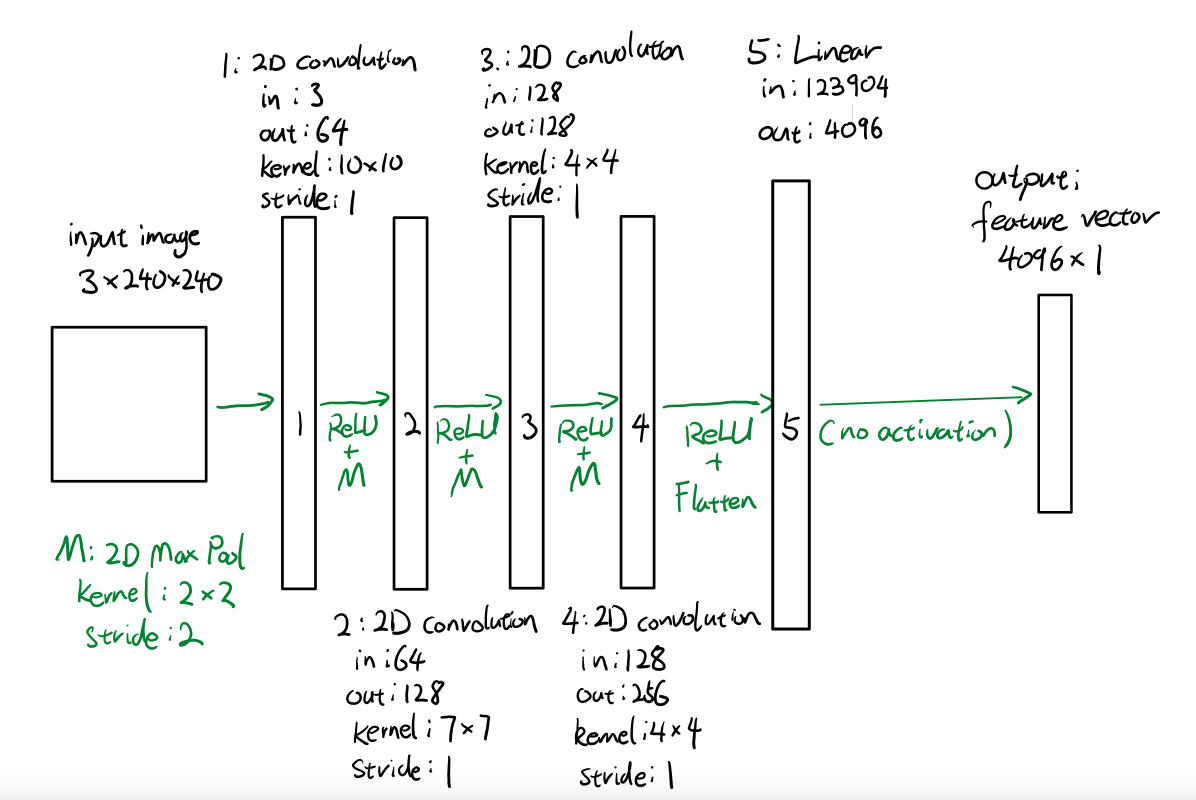 1: 2D convolution
in: 3
out: 64
kernel: 10×10
stride: 1
3.: 2D convolution
in: 128
out: 128
kernel: 4×4
stride: 1
5: Linear
in: 123904
out: 4096
output:
feature vector
4096×1
input image
3×240×240
1
ReLU
+
M
2
ReLU
+
M
3
ReLU
+
M
4
ReLU
+
Flatten
5
(no activation)
M: 2D Max Pool
kernel: 2×2
stride: 2
2: 2D convolution
in: 64
out: 128
kernel: 7×7
stride: 1
4: 2D convolution
in: 128
out: 256
kernel: 4×4
stride: 1